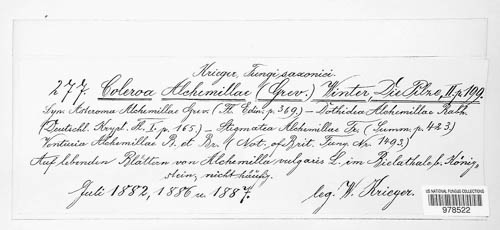 Krieger, Fungi saxonici.
277. Coleroa Alchemillae (Grev.) Winter, Die Pilze, II. p. 199.
Syn. Asteroma Alchemillae Grev. (Fl. Edin. p. 369) – Dothidea Alchemillae Rabh.
(Deutschl. Krypt. Fl. I. p. 165.) – Stigmatea Alchemillae Fr. (Summ. p. 423)
Venturia Alchemillae B. et Br. (Not. of Brit. Fung. Nr. 1493.)
Auf lebenden Blättern von Alchemilla vulgaris L. im Bielathale b. König-
stein, nicht häufig.
Juli 1882, 1886 u. 1887. leg. W. Krieger.
US NATIONAL FUNGUS COLLECTIONS
978522